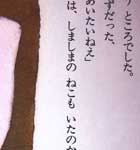 ところでした。
ずだった、
あいたいねえ」
は、しましまの ねこも いたのか